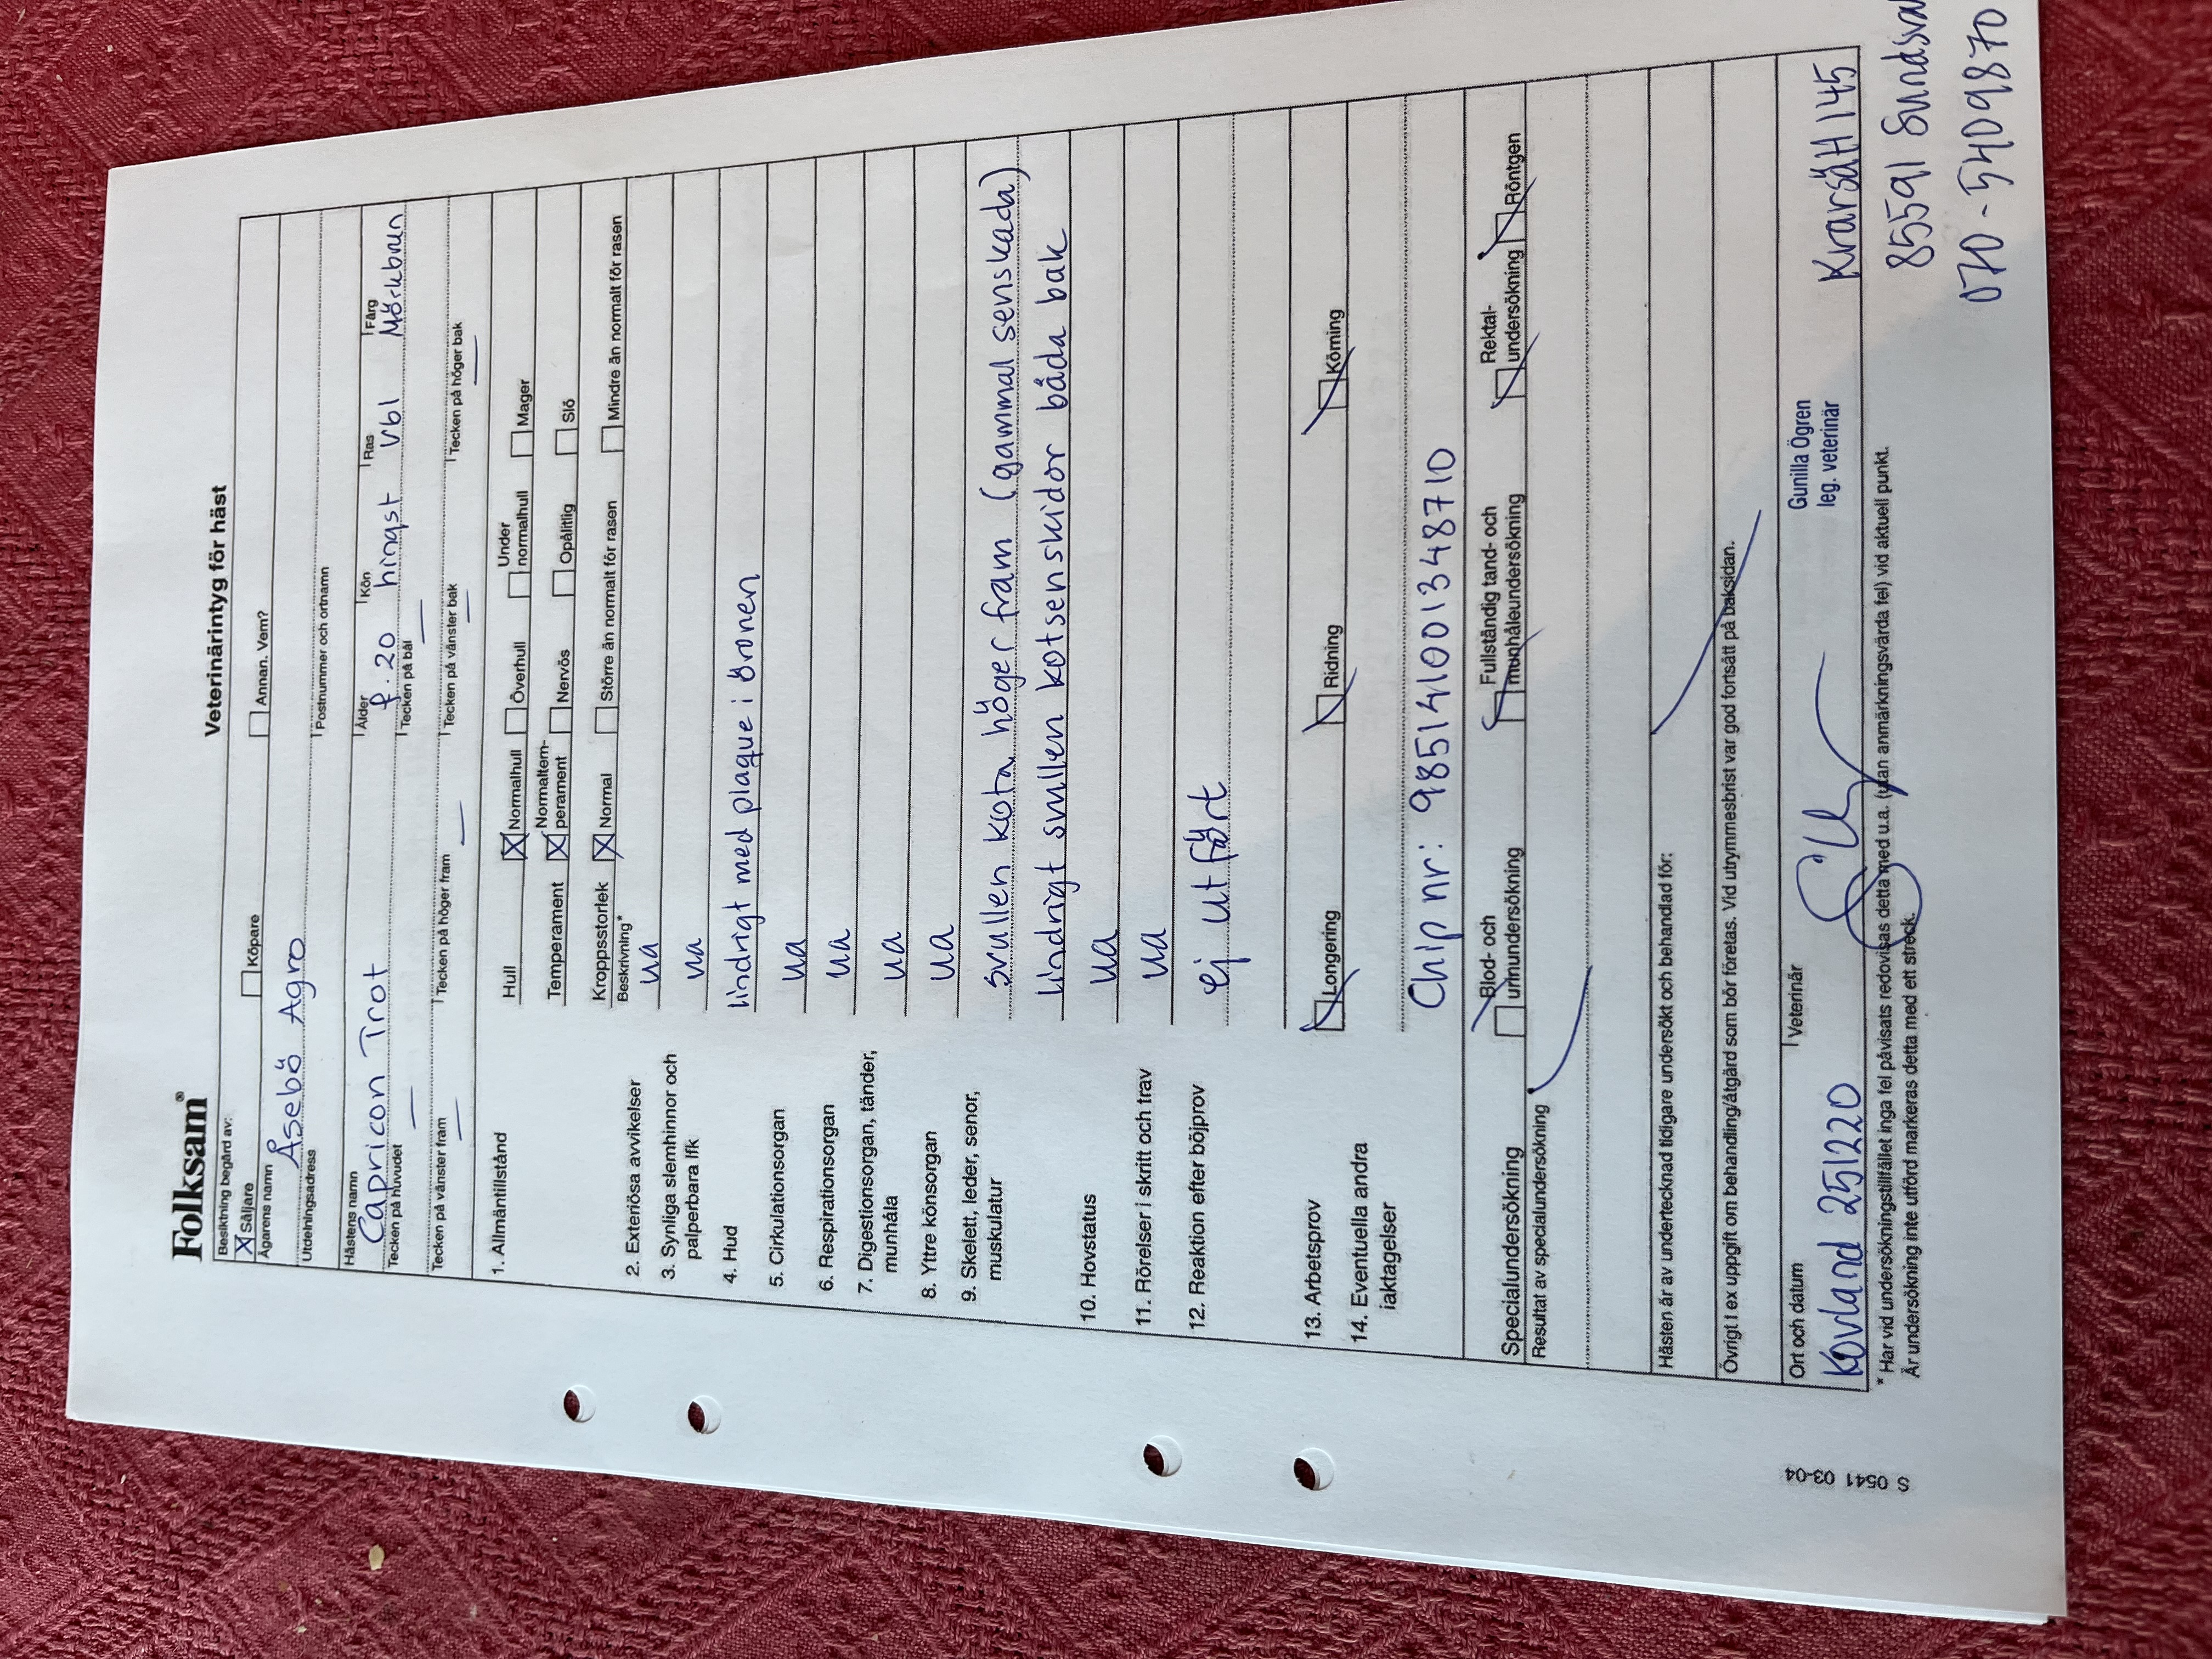 Folksam®
Veterinärintyg för häst
Besiktning begärd av:
X Säljare Köpare Annan. Vem?
Ägarens namn
Åsebö Agro
Utdelningsadress Postnummer och ortnamn
Hästens namn Ålder Kön Ras Färg
Capricon Trot f. 20 hingst Vbl Mörkbrun
Tecken på huvudet Tecken på bål
Tecken på vänster fram Tecken på höger fram Tecken på vänster bak Tecken på höger bak
1. Allmäntillstånd Hull X Normalhull Överhull Under normalhull Mager
Temperament X Normaltemperament Nervös Opålitlig Slö
Kroppsstorlek X Normal Större än normalt för rasen Mindre än normalt för rasen
Beskrivning*
2. Exteriösa avvikelser ua
3. Synliga slemhinnor och ua
palperbara lfk
4. Hud lindrigt med plaque i öronen
5. Cirkulationsorgan ua
6. Respirationsorgan ua
7. Digestionsorgan, tänder, ua
munhåla
8. Yttre könsorgan ua
9. Skelett, leder, senor, svullen kota höger fram (gammal senskada)
muskulatur lindrigt svullen kotsenskidor båda bak
10. Hovstatus ua
11. Rörelser i skritt och trav ua
12. Reaktion efter böjprov ej utfört
13. Arbetsprov Longering Ridning Körning
14. Eventuella andra
iaktagelser Chip nr: 985141001348710
Specialundersökning Blod- och urinundersökning Fullständig tand- och munhåleundersökning Rektal- undersökning Röntgen
Resultat av specialundersökning
Hästen är av undertecknad tidigare undersökt och behandlad för:
Övrigt I ex uppgift om behandling/åtgärd som bör företas. Vid utrymmesbrist var god fortsätt på baksidan.
Ort och datum Veterinär
Kovland 251220
Gunilla Ögren
leg. veterinär
Kvarsätt 145
85591 Sundsval
070-5409870
* Har vid undersökningstillfället inga fel påvisats redovisas detta med u.a. (utan anmärkningsvärda fel) vid aktuell punkt.
Är undersökning inte utförd markeras detta med ett streck.
S 0541 03-04